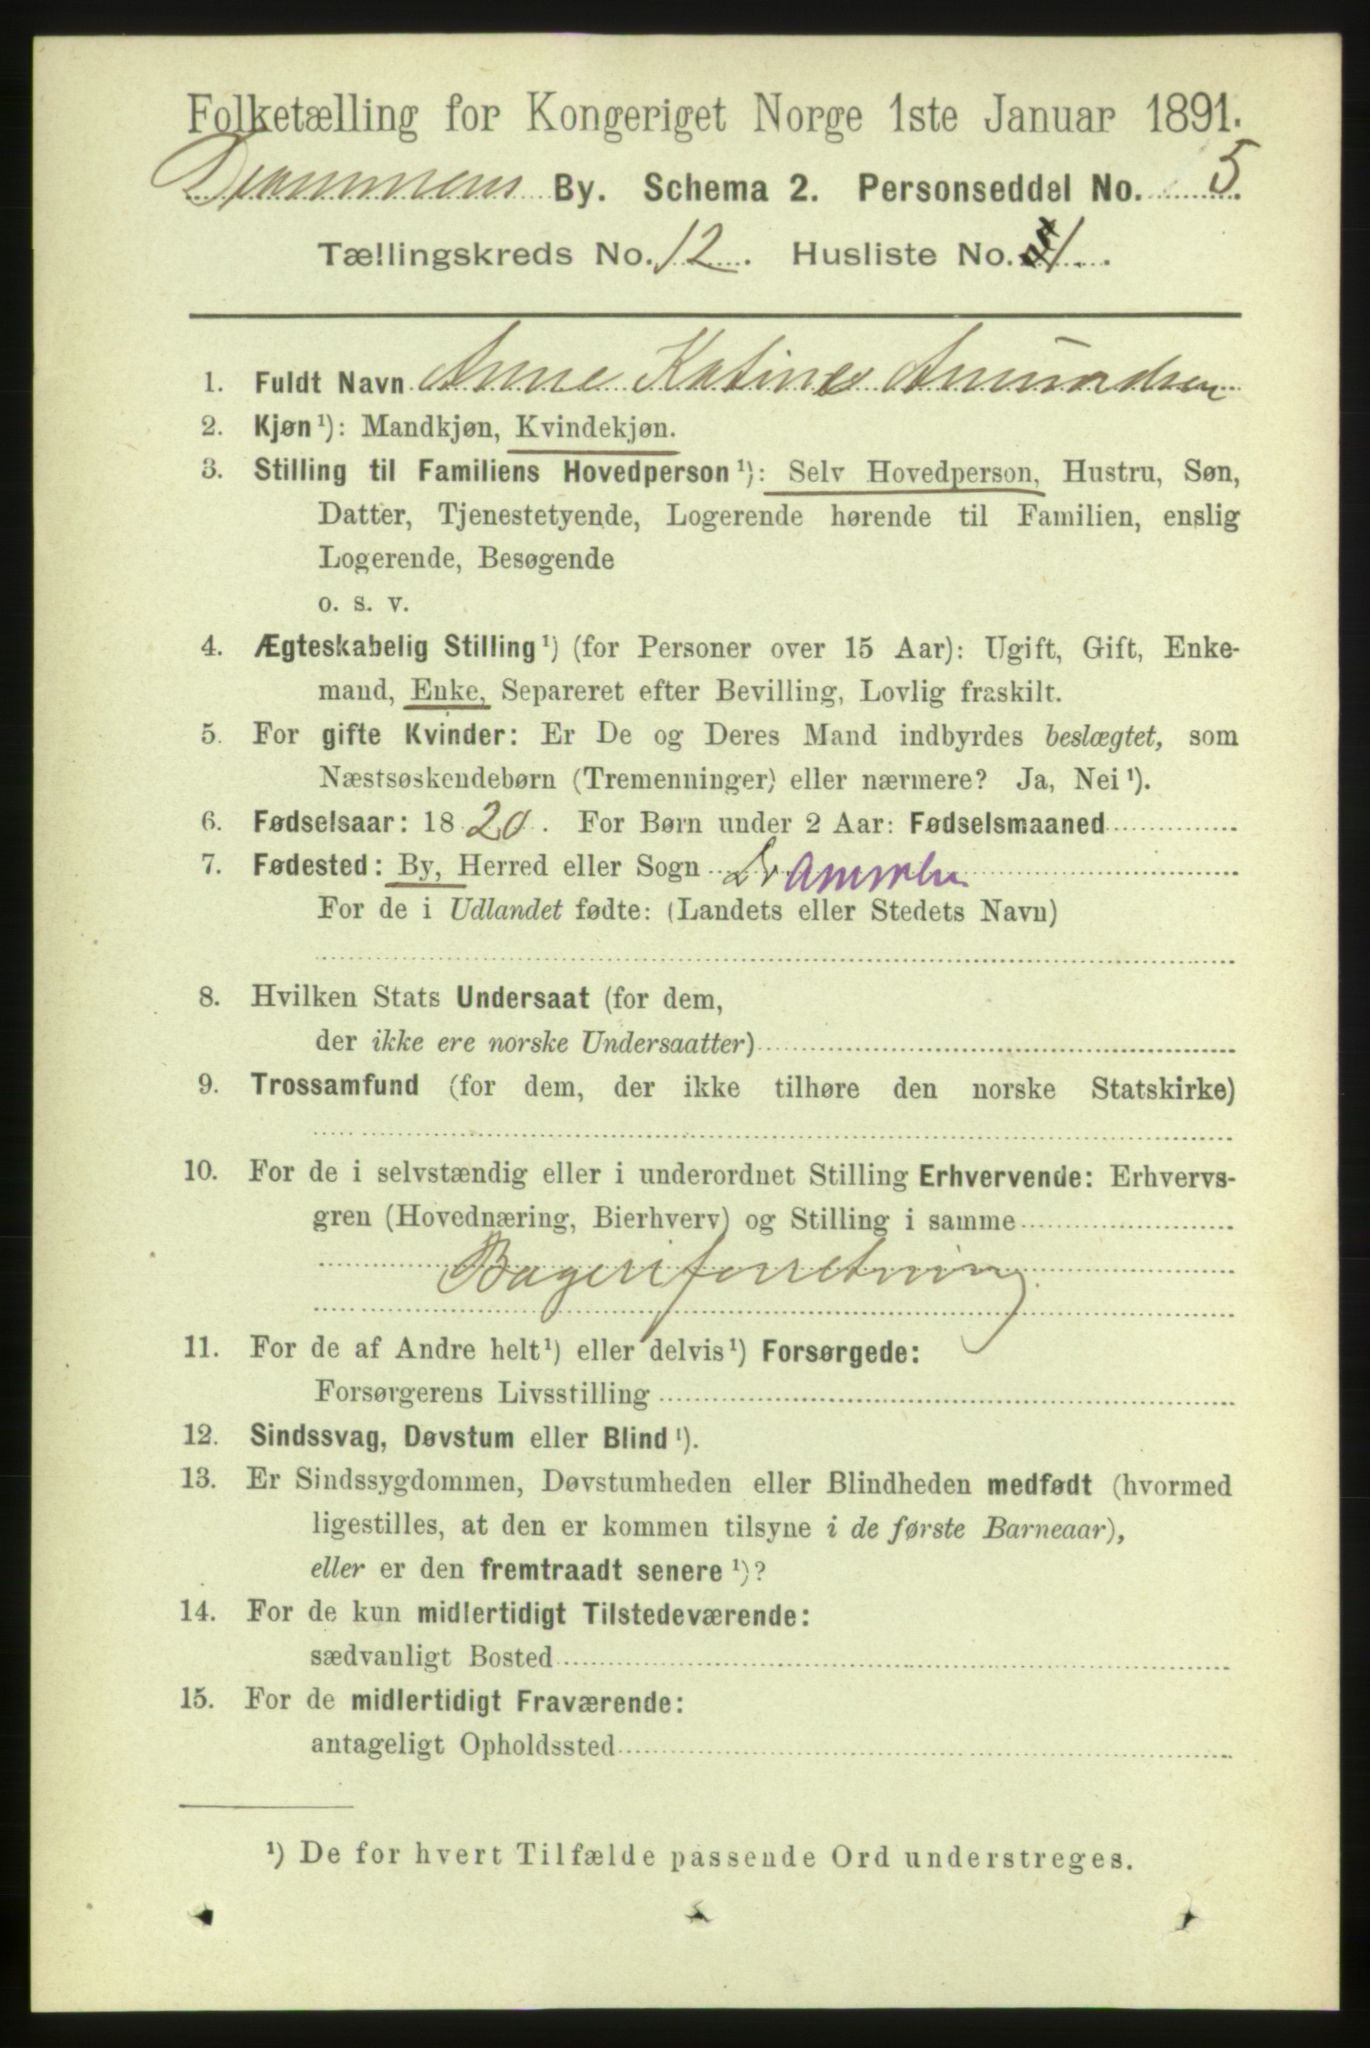 Folketælling for Kongeriget Norge 1ste Januar 1891.
Drammens By. Schema 2. Personseddel No. 5
Tællingskreds No. 12. Husliste No. 1.
1. Fuldt Navn Anne Katine Amundsen
2. Kjøn ¹): Mandkjøn, Kvindekjøn.
3. Stilling til Familiens Hovedperson ¹): Selv Hovedperson, Hustru, Søn,
Datter, Tjenestetyende, Logerende hørende til Familien, enslig
Logerende, Besøgende
o. s. v.
4. Ægteskabelig Stilling ¹) (for Personer over 15 Aar): Ugift, Gift, Enke-
mand, Enke, Separeret efter Bevilling, Lovlig fraskilt.
5. For gifte Kvinder: Er De og Deres Mand indbyrdes beslægtet, som
Næstsøskendebørn (Tremenninger) eller nærmere? Ja, Nei ¹).
6. Fødselsaar: 1820. For Børn under 2 Aar: Fødselsmaaned
7. Fødested: By, Herred eller Sogn Drammen
For de i Udlandet fødte: (Landets eller Stedets Navn)
8. Hvilken Stats Undersaat (for dem,
der ikke ere norske Undersaatter)
9. Trossamfund (for dem, der ikke tilhøre den norske Statskirke)
10. For de i selvstændig eller i underordnet Stilling Erhvervende: Erhvervs-
gren (Hovednæring, Bierhverv) og Stilling i samme
Bageriforretning
11. For de af Andre helt ¹) eller delvis ¹) Forsørgede:
Forsørgerens Livsstilling
12. Sindssvag, Døvstum eller Blind ¹).
13. Er Sindssygdommen, Døvstumheden eller Blindheden medfødt (hvormed
ligestilles, at den er kommen tilsyne i de første Barneaar),
eller er den fremtraadt senere ¹)?
14. For de kun midlertidigt Tilstedeværende:
sædvanligt Bosted
15. For de midlertidigt Fraværende:
antageligt Opholdssted
¹) De for hvert Tilfælde passende Ord understreges.